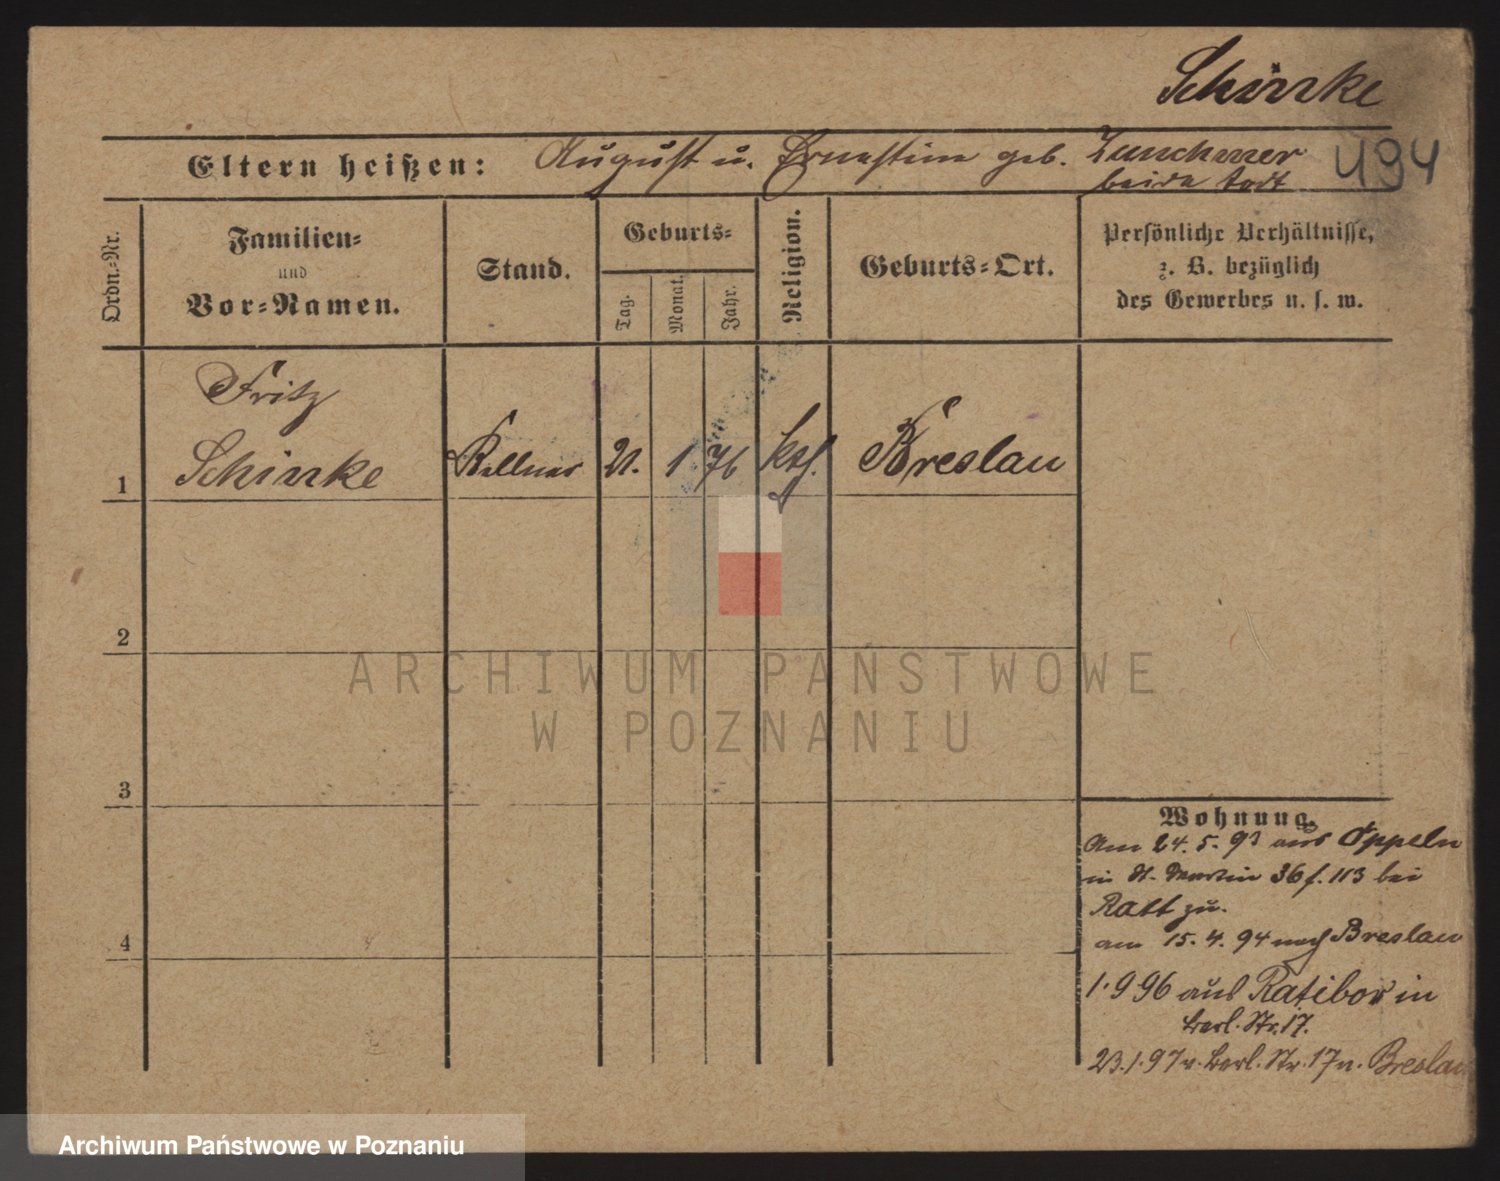 Schirrke
Eltern heißen: August u. Ernestine geb.
beide todt
494
Ordn.-Nr.
Familien-
und
Vor-Namen.
Stand.
Geburts-
Tag.
Monat.
Jahr.
Religion.
Geburts-Ort.
Persönliche Verhältnisse,
z. B. bezüglich
des Gewerbes u. s. w.
Fritz
1 Schirrke Kellner 21. 1 76 kth. Breslau
2
3
4
Wohnung.
Am 24. 5. 93 aus Oppeln
in St. Martin 36 f. 113 bei
Ratt zu.
am 15. 4. 94 nach Breslau
1.9 96 aus Ratibor in
Berl. Str. 17.
23.1.97 v. Berl. Str. 17 n. Breslau
ARCHIWUM PAŃSTWOWE
W POZNANIU
Archiwum Państwowe w Poznaniu